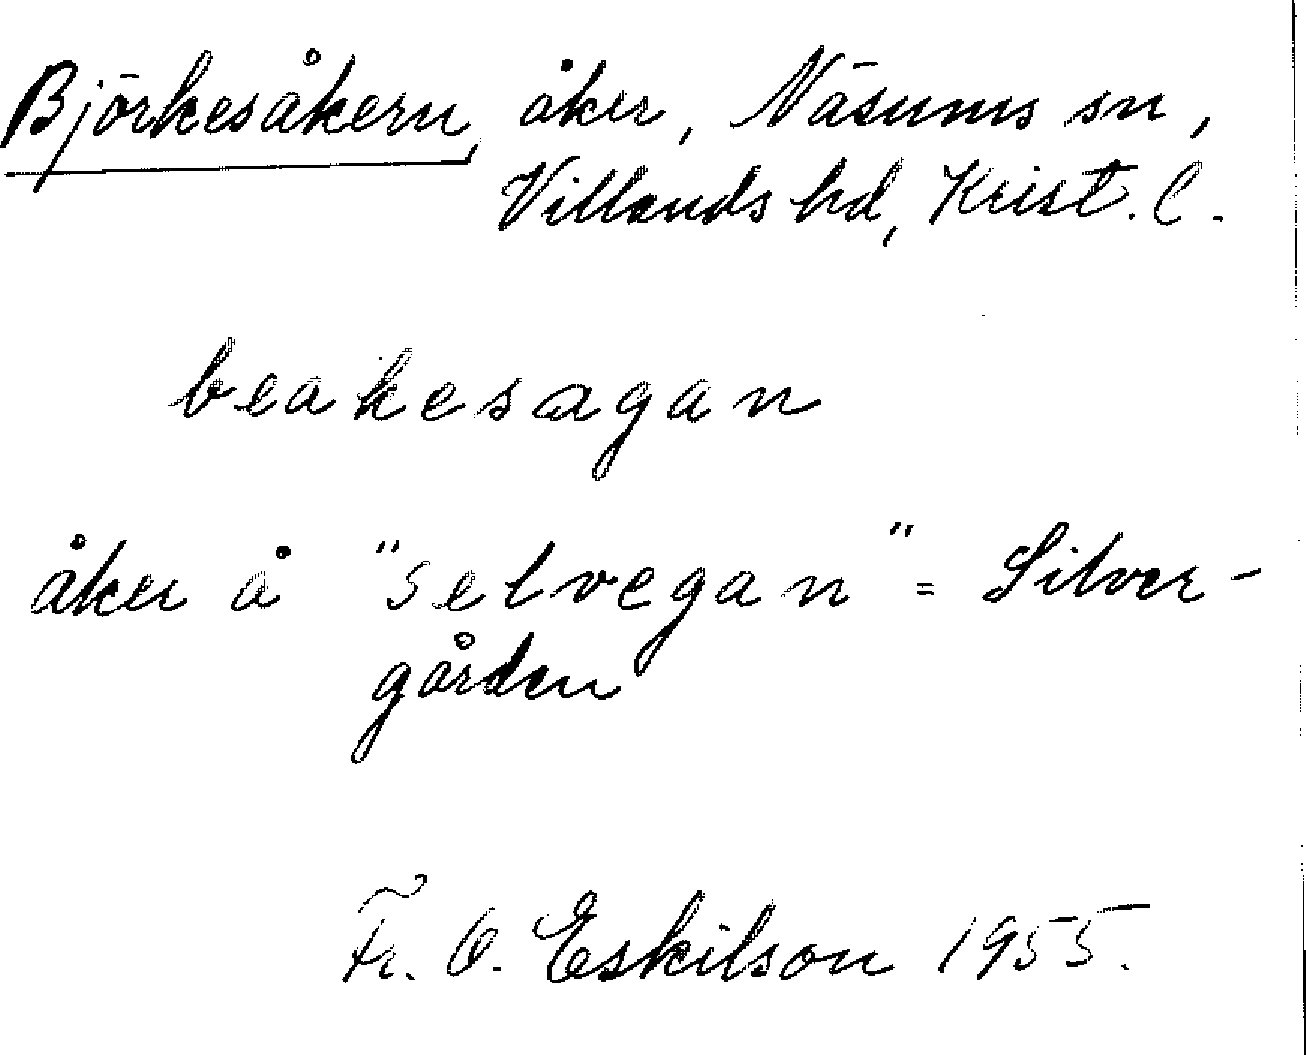 Björkesåkern, åker, Näsums sn,
Villands hd, Krist. l.
beakesagan
åker å "selvegan" = Silver-
gården
Fr. O. Eskilson 1955.